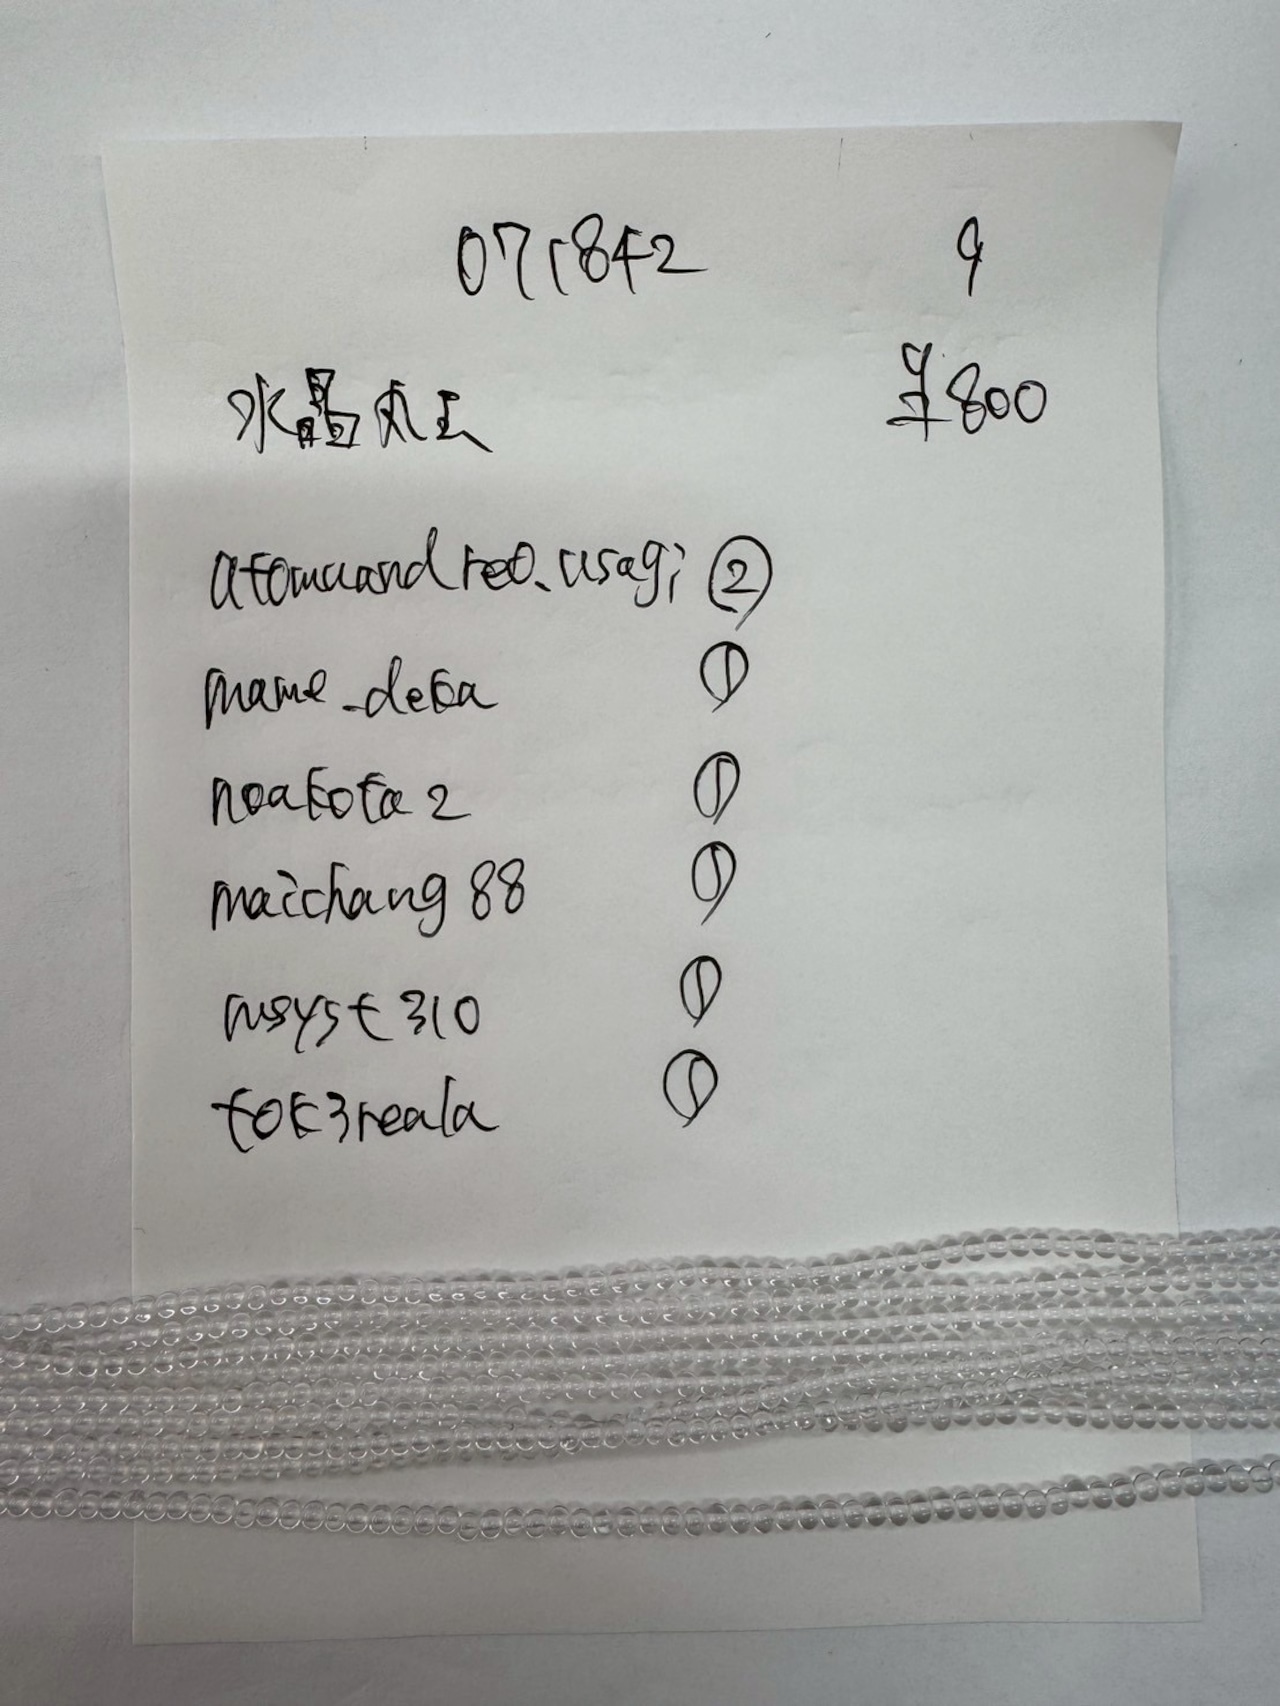 071842 9
水晶丸玉 ¥800
atomuandreo_usagi ②
mame_deka ①
noakota2 ①
maichang88 ①
msyst310 ①
tok3reala ①